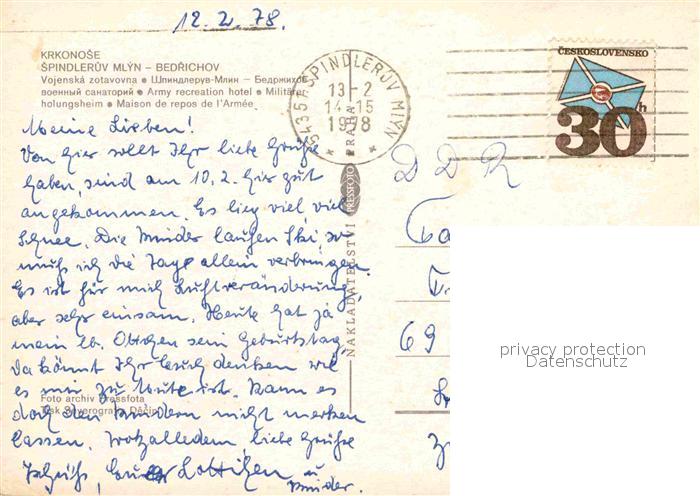 12.2.78.
KRKONOŠE
ŠPINDLERŮV MLÝN – BEDŘICHOV
Vojenská zotavovna • Шпиндлерув-Млин – Бедржихов
военный санаторий • Army recreation hotel • Militär-
holungsheim • Maison de repos de l'Armée
Meine Lieben!
Von hier sollt Ihr liebe Grüße
haben, sind am 10.2. hier gut
angekommen. Es liegt viel viel
Schnee. Die Kinder laufen Ski, so
muß ich die Tage allein verbringen.
Es ist für mich Luftveränderung,
aber sehr einsam. Heute hat ja
mein lb. Ottchen sein Geburtstag,
da könnt Ihr Euch denken wie
es mir zu Mute ist. Kann es
doch den Kindern nicht merken
lassen. Trotzalledem, liebe Grüße
Eure Lottchen u
Kinder.
Foto archiv Pressfota
Tisk Severografia Děčín
NAKLADATELSTVÍ PRESSFOTO PRAHA
54351 ŠPINDLERŮV MLÝN
13-2
14-15
1978
ČESKOSLOVENSKO
30h
DDR
69
privacy protection
Datenschutz